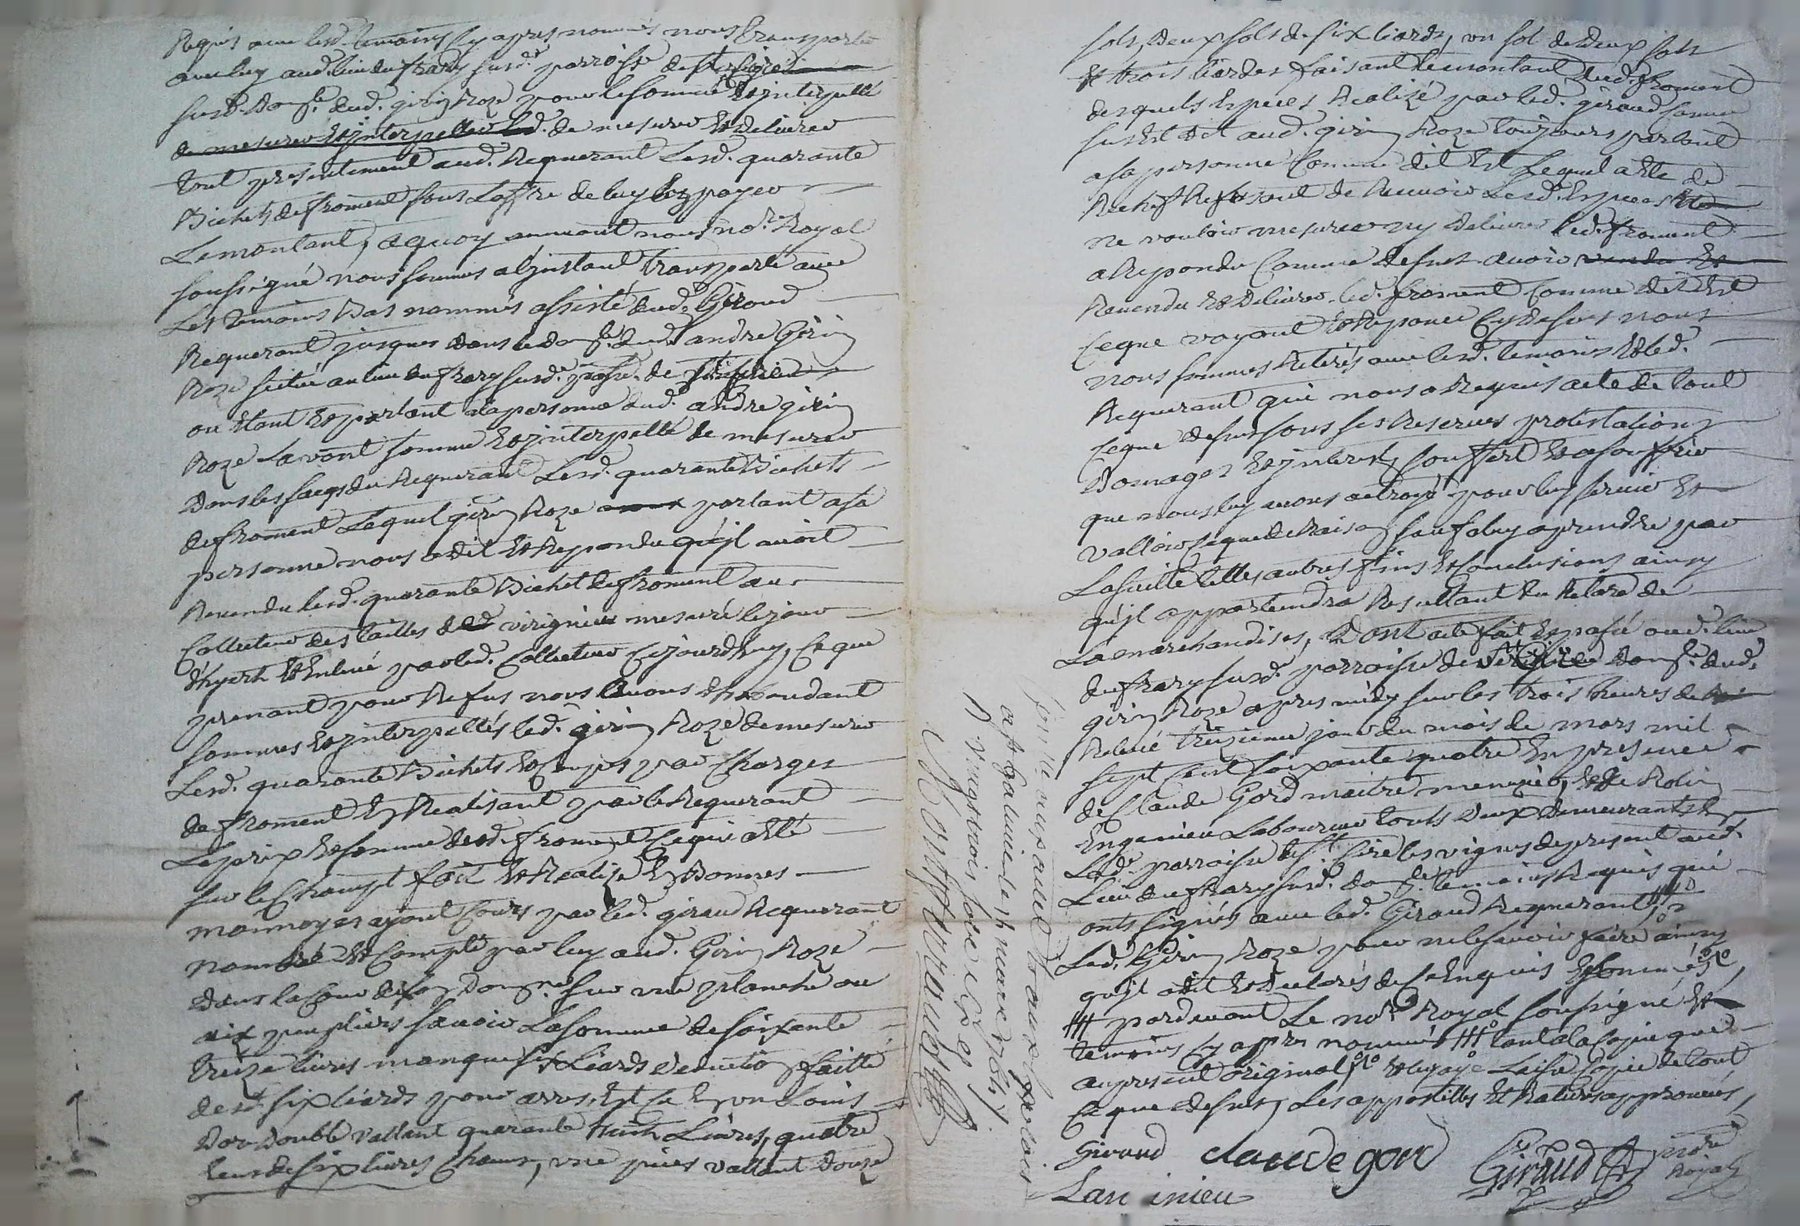 Requis avec lesd. temoins cy apres nommés nous transporter
avec luy aud. lieu du frary susd. parroisse de St
susd. Domle. dud. girin Roze pour le sommer & interpeller
de mesurer & interpeller led. de mesurer & delivrer
tout presentement aud. Requerant Lesd. quarante
Bichets de froment sous Loffre de luy En payer
Le montant, a quoy nous no.re Royal
soussigné nous sommes a l'jnstant transporté avec
Les temoins bas nommés assisté dud. Giraud
Requerant jusques dans le dom.le dud. andre Girin
Roze scitué au lieu du frary susd. de
ou Etant & parlant a la personne dud. andre girin
Roze Lavont sommé & jnterpellé de mesurer
Dans les sacqs du Requerant Lesd. quarante Bichets
de froment Lequel girin Roze parlant a sa
personne nous a dit & Repondu qu'jl avoit
Revendu lesd. quarante Bichet de froment au
Collecteur des tailles de virignieu mesuré le jour
d'hyerh & Enlevé par led. Collecteur Cejourdhuy, Ce que
prenant pour Refus nous Lavons
sommes & jnterpellés led. girin Roze de mesurer
Lesd. quarante Bichets par Charges
de froment En Realisant par le Requerant
Le prix & somme dud. froment Ce qui a Eté
sur le Champt fait & Realizé En Bonnes
monnoyes ayant Cours par led. giraud Requerant
nombré & Compté par luy aud. Girin Roze
Dans la Cour de son Dom.le sur une planche au
peupliers savoir La somme de soixante
treize livres manque six Liards deduction faitte
desd. six liards pour arres, Est Ce En un Louis
Dor Double vallant quarante huit Livres, quatre
Ecus de six livres Chacun, une piece vallant Douze
sols, Deux sols de six liards, un sol de deux sols
& trois liardes faisant le montant dud. froment
desquels Especes Realizé par led. giraud
aud. girin Roze toujours parlant
a sa personne Comme dit Est Lequel a Eté de
Rechef Refusant de Recevoir Lesd. Especes &
ne vouloir mesurer ny delivrer led. froment
a Repondu Comme dessus avoir vendu &
Revendu & delivrer led. froment Comme dit Est
Ce que voyant & Reponce Cy dessus nous
nous sommes Retirés avec lesd. temoins & led.
Requerant qui nous a Requis acte de tout
Ce que dessus sous ses Reserves protestations
Domages & jnterests souffert & a souffrir
que nous luy avons actroyé pour luy servir &
valloir Ce que de Raison sauf a luy a prendre par
La suitte telles autres fins & Conclusions ainsy
qu'jl appartiendra Resultant du Retard de
La marchandises, Dont acte fait & passé aud. lieu
du frary susd. parroisse de Dom.le dud.
girin Roze apres midy sur les trois heures de
Relevé treizieme jour du mois de mars mil
sept Cent soixante quatre En presence
de Claude Gord maitre menuzier, & de
Laboureur touts Deux Demeurants En
Lad. parroisse de St Cire les vignes de present aud.
Lieu du frary susd. dom.le temoins Requis qui
onts signés avec led. Giraud Requerant
Led. Girin Roze pour ne le savoir faire ainsy
qu'jl a dit & Declarés de Ce Enquis & sommé
pardevant Le no.re Royal soussigné &
temoins Cy apres nommés tant a la Copie que
au present original, Laissé Copie de tout
Ce que dessus, Les appostilles & Ratures approuvés
Giraud claude gord Giraud no.re
Royal
Controllé
a st galmier le 15 mars 1764
R vingt trois sols